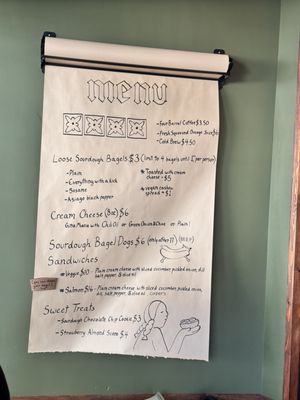 menu
- Four Barrel Coffee $3.50
- Fresh Squeezed Orange Juice $6
- Cold Brew $4.50
Loose Sourdough Bagels $3 (limit to 4 bagels until 1 per person)
- Plain
- Everything with a kick
- Sesame
- Asiago black pepper
* Toasted with cream cheese - $5
* vegan cashew spread - $2
Cream Cheese (8oz) $6
with Chili Oil or Green Onion & Chive or Plain!
Sourdough Bagel Dogs $6 (only after 11) (BEEF)
Sandwiches
- Veggie $10 - Plain cream cheese with sliced cucumber, pickled onion, dill, salt, pepper
- Salmon $16 - Plain cream cheese with sliced cucumber, pickled onion, dill, salt, pepper, capers
Sweet Treats
- Sourdough Chocolate Chip Cookie $3
- Strawberry Almond Scone $4